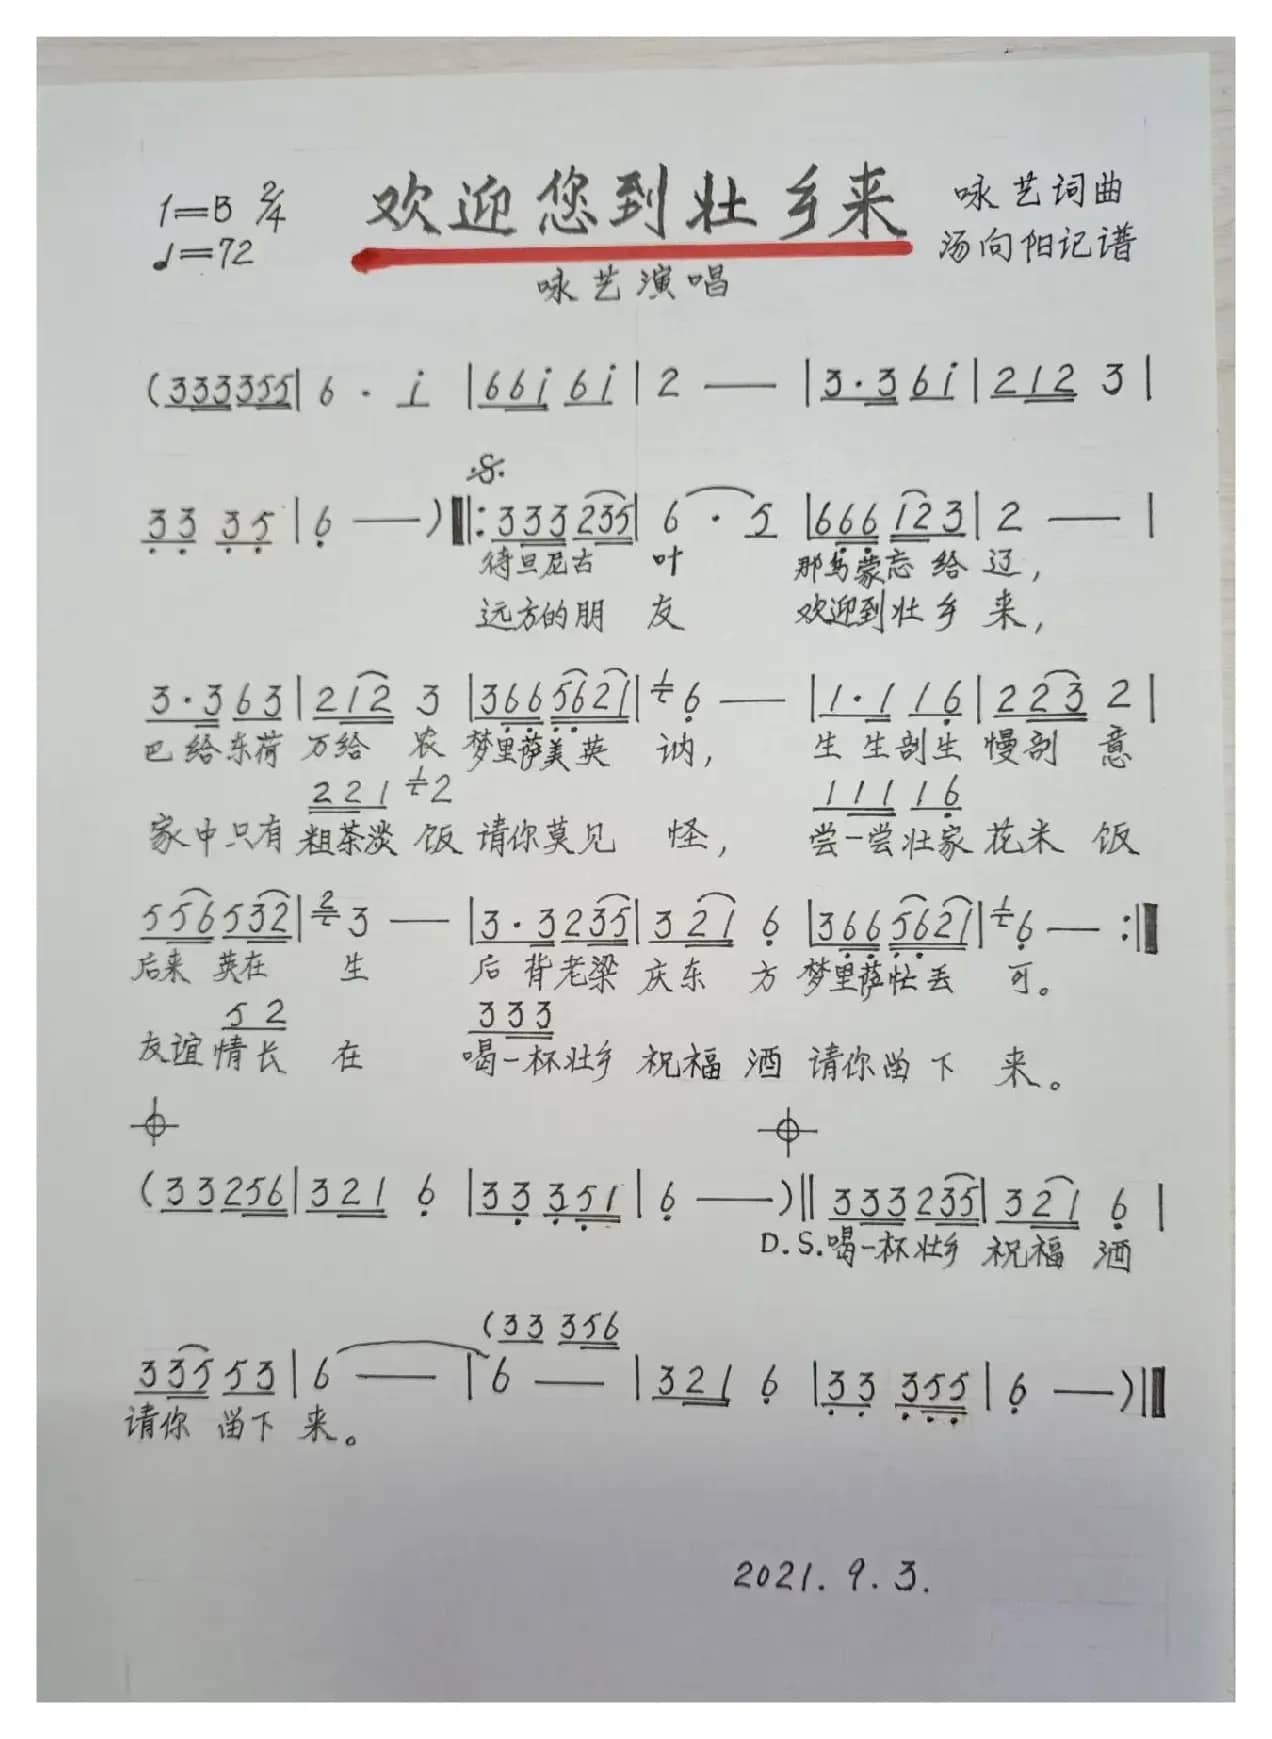 1=B 2/4 欢迎您到壮乡来 咏艺词曲
♩=72 汤向阳记谱
咏艺演唱
(333355|6·i|66i6i|2—|3·36i|2123|
33 35|6—)‖:333235|6·5|666123|2—|
待旦尼古 叶 那鸟蒙忘给 辽,
远方的朋 友 欢迎到壮乡 来,
3·363|2123|3665621|1/6—|1·116|2232|
巴给东荷 万给 农 梦里萨美英 讷, 生生剖生 慢剖 意
221 1/2 111 16
家中只有 粗茶淡 饭 请你莫见 怪, 尝一尝壮家 花米 饭
556532|2/3—|3·3235|3216|3665621|1/6—:‖
后来 英在 生 后背老梁 庆东 方 梦里萨忙丢 可。
52 333
友谊情长 在 喝一杯壮乡 祝福 酒 请你留下 来。
(33256|3216|33351|6—)‖333235|3216|
D.S.喝一杯壮乡 祝福 酒
(33 356
33553|6—|6—|3216|33355|6—)‖
请你 留下 来。
2021.9.3.